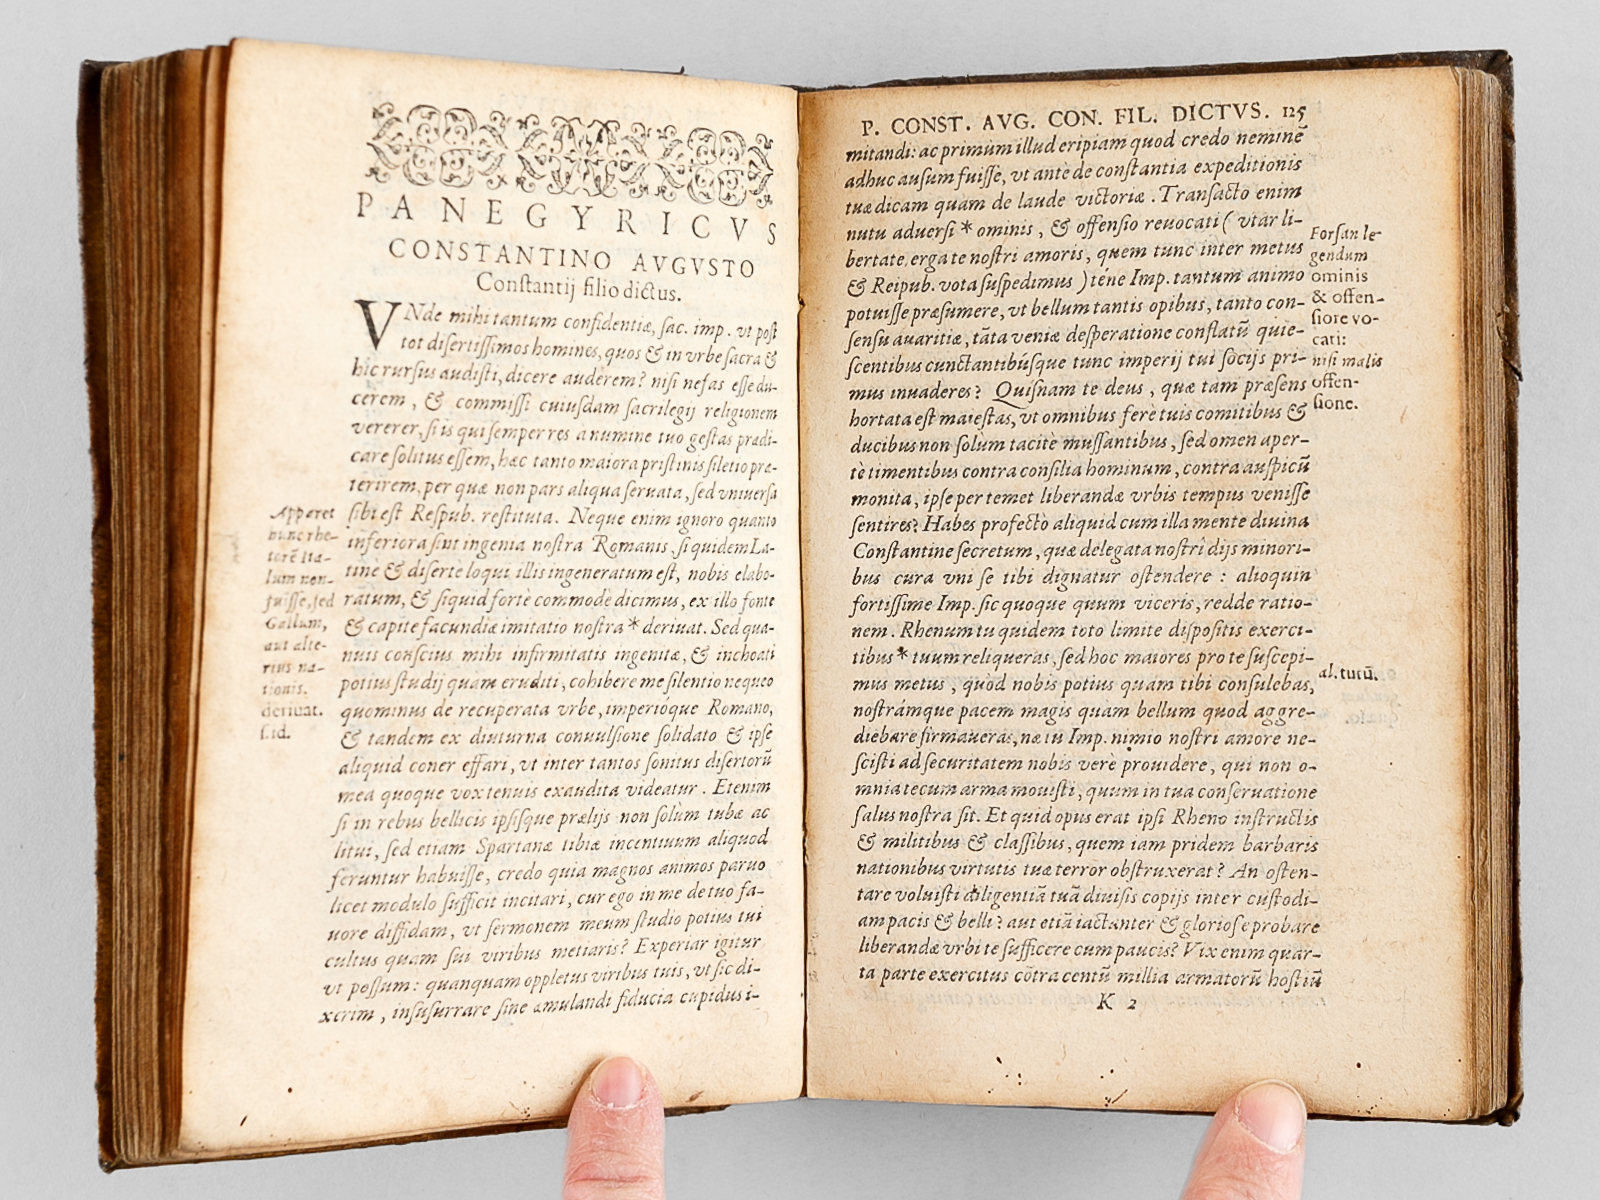 PANEGYRICVS
CONSTANTINO AVGVSTO
Constantij filio dictus.
VNde mihi tantum confidentiæ, sac. imp. vt post
tot disertissimos homines, quos & in vrbe sacra &
hîc rursus audisti, dicere auderem? nisi nefas esse du-
cerem, & commissi cuiusdam sacrilegij religionem
vererer, si is qui semper res a numine tuo gestas prædi-
care solitus essem, hæc tanto maiora pristinis siletio præ-
terirem, per quæ non pars aliqua seruata, sed vniuersa
sibi est Respub. restituta. Neque enim ignoro quanto
inferiora sint ingenia nostra Romanis, siquidem La-
tine & diserte loqui illis ingeneratum est, nobis elabo-
ratum, & siquid fortè commodè dicimus, ex illo fonte
& capite facundiæ imitatio nostra * deriuat. Sed qua-
nuis conscius mihi infirmitatis ingenitæ, & inchoati
potius studij quam eruditi, cohibere me silentio nequeo
quominus de recuperata vrbe, imperióque Romano,
& tandem ex diuturna conuulsione solidato & ipse
aliquid coner effari, vt inter tantos sonitus disertorū
mea quoque vox tenuis exaudita videatur. Etenim
si in rebus bellicis ipsisque prælijs non solùm tubæ ac
litui, sed etiam Spartanæ tibiæ incentiuum aliquod
feruntur habuisse, credo quia magnos animos paruo
licet modulo sufficit incitari, cur ego in me de tuo fa-
uore diffidam, vt sermonem meum studio potius tui
cultus quam sui viribus metiaris? Experiar igitur
vt possum: quanquam oppletus viribus tuis, vt sic di-
xerim, insusurrare sine æmulandi fiducia cupidus i-
Apparet
hunc rhe-
torē Ita-
lum non-
fuisse, sed
Gallum,
aut alte-
rius na-
tionis.
deriuat.
s. id.
P. CONST. AVG. CON. FIL. DICTVS. 125
mitandi: ac primùm illud eripiam quod credo neminē
adhuc ausum fuisse, vt ante de constantia expeditionis
tuæ dicam quàm de laude victoriæ. Transacto enim
nutu aduersi * ominis, & offensio reuocati ( vtar li-
bertate erga te nostri amoris, quem tunc inter metus
& Reipub. vota suspedimus ) téne Imp. tantum animo
potuisse præsumere, vt bellum tantis opibus, tanto con-
sensu auaritiæ, tāta veniæ desperatione conflatū quie-
scentibus cunctantibúsque tunc imperij tui socijs pri-
mus inuaderes? Quisnam te deus, quæ tam præsens
hortata est maiestas, vt omnibus ferè tuis comitibus &
ducibus non solùm tacitè mussantibus, sed omen aper-
tè timentibus contra consilia hominum, contra auspicū
monita, ipse per temet liberandæ vrbis tempus venisse
sentires? Habes profectò aliquid cum illa mente diuina
Constantine secretum, quæ delegata nostri dijs minori-
bus cura vni se tibi dignatur ostendere : alioquin
fortissime Imp. sic quoque quum viceris, redde ratio-
nem. Rhenum tu quidem toto limite dispositis exerci-
tibus * tuum reliqueras, sed hoc maiores pro te suscepi-
mus metus, quòd nobis potius quam tibi consulebas,
nostrámque pacem magis quam bellum quod aggre-
diebare firmaueras, næ tu Imp. nimio nostri amore ne-
scisti ad securitatem nobis verè prouidere, qui non o-
mnia tecum arma mouisti, quum in tua conseruatione
salus nostra sit. Et quid opus erat ipsi Rheno instructis
& militibus & classibus, quem iam pridem barbaris
nationibus virtutis tuæ terror obstruxerat? An osten-
tare voluisti diligentiā tuā diuisis copijs inter custodi-
am pacis & belli? aut etiā iactanter & gloriose probare
liberandæ vrbi te sufficere cum paucis? Vix enim quar-
ta parte exercitus cōtra centū millia armatorū hostiū
K 2
Forsan le-
gendum
ominis
& offen-
siore vo-
cati:
nisi malis
offen-
sione.
al. tutū.